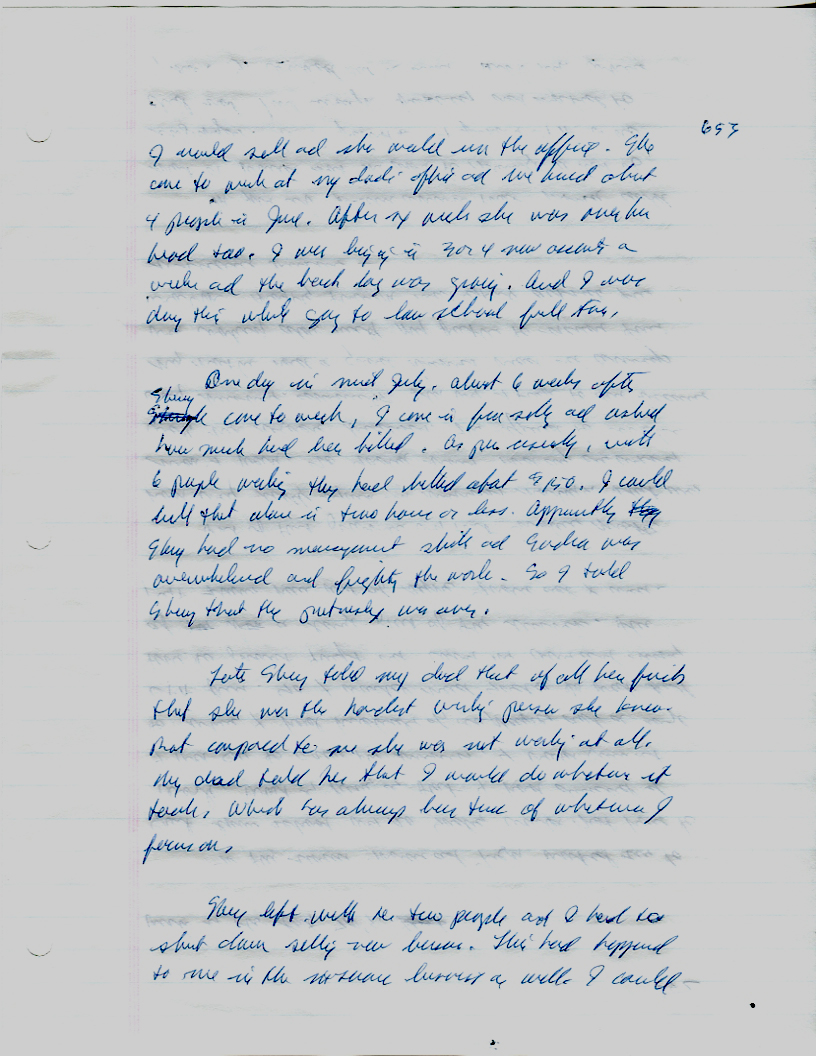 653
I would sell ad she would run the office. She
come to work at my dads office ad we hired about
4 people in June. After six weeks she was over her
head too. I was bringing in 3 or 4 new accounts a
week ad the back log was growing. And I was
doing this while going to law school full time.
One day in mid July, about 6 weeks after
Sherry come to work, I come in from selling ad asked
how much had been billed. As previously, with
6 people working they had billed about $150. I could
bill that alone in two hours or less. Apparently
Sherry had no management skills ad was
overwhelmed and the work. So I told
Sherry that the partnership was over.
Later Sherry told my dad that of all her friends
that she was the hardest working person she knew.
That compared to me she was not working at all.
My dad told her that I would do whatever it
took, which has always been true of whatever I
focus on.
Sherry left with her two people and I had to
shut down selling new business. This had happened
to me in the insurance business as well. I could